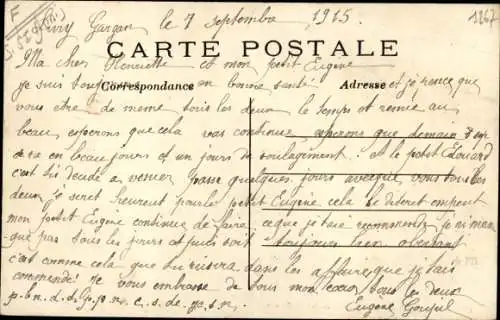 F
1867
Livry Gargan le 7 Septembre 1915
CARTE POSTALE
Ma cher Henriette et mon petit Eugène
Correspondance
Adresse
je suis toujours en bonne santé et je pense que
vous être de meme tous les deux le temps et remie au
beau esperons que cela vas continue esperons que demain
sera en beau jours et un jours de soulagement. et le petit Edouard
c'est il décidé a venir passe quelques jours avecque vous tous les
deux je seret heureut pour le petit Eugène cela le distret empent
mon petit Eugène continue de faire ceque je te recommende
que pas tous les jours et puis soit toujours bien obeisant
c'est comme cela que tu rusira dans les affaires que je tais
commende. Je vous embrasse de tous mon cœur tous les deux
p. b. n. d. d. G. p. n. c. s. de. p. s. n.
Eugène Goujul